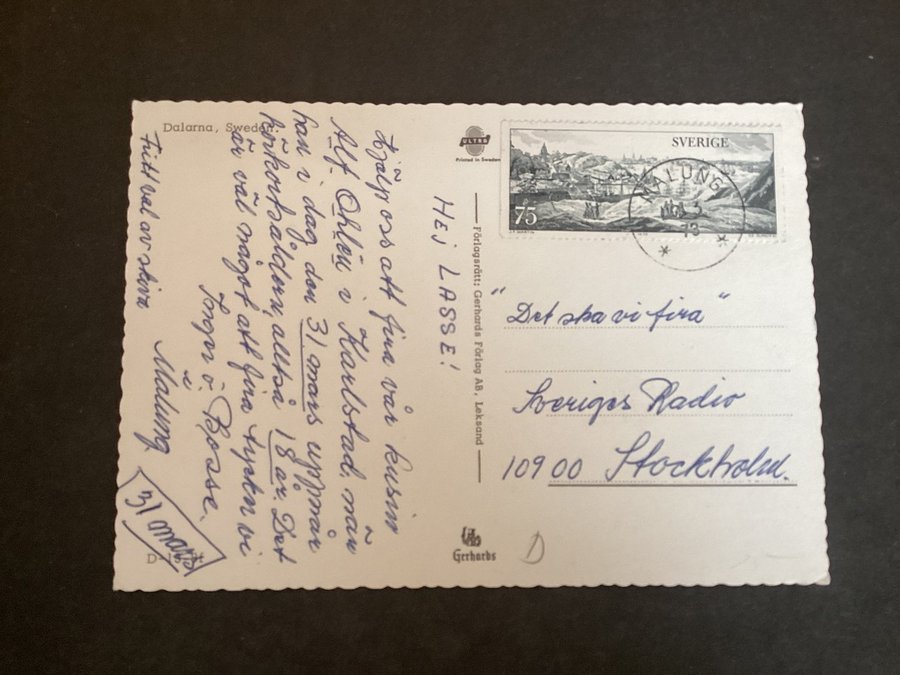 Dalarna, Sweden.
HEJ LASSE!
Hjälp oss att fira vår kusin
Alf Ohlén i Karlstad, när
han i dag den 31 mars uppnår
körkortsåldern alltså 18 år. Det
är väl något att fira tycker vi
Inger o Bosse.
i
Malung
Fritt val av skiva
31 mars
ULTRA
Printed in Sweden
Förlagsrätt: Gerhards Förlag AB, Leksand
Gerhards
D
SVERIGE
75
MALUNG
"Det ska vi fira"
Sveriges Radio
109 00 Stockholm.